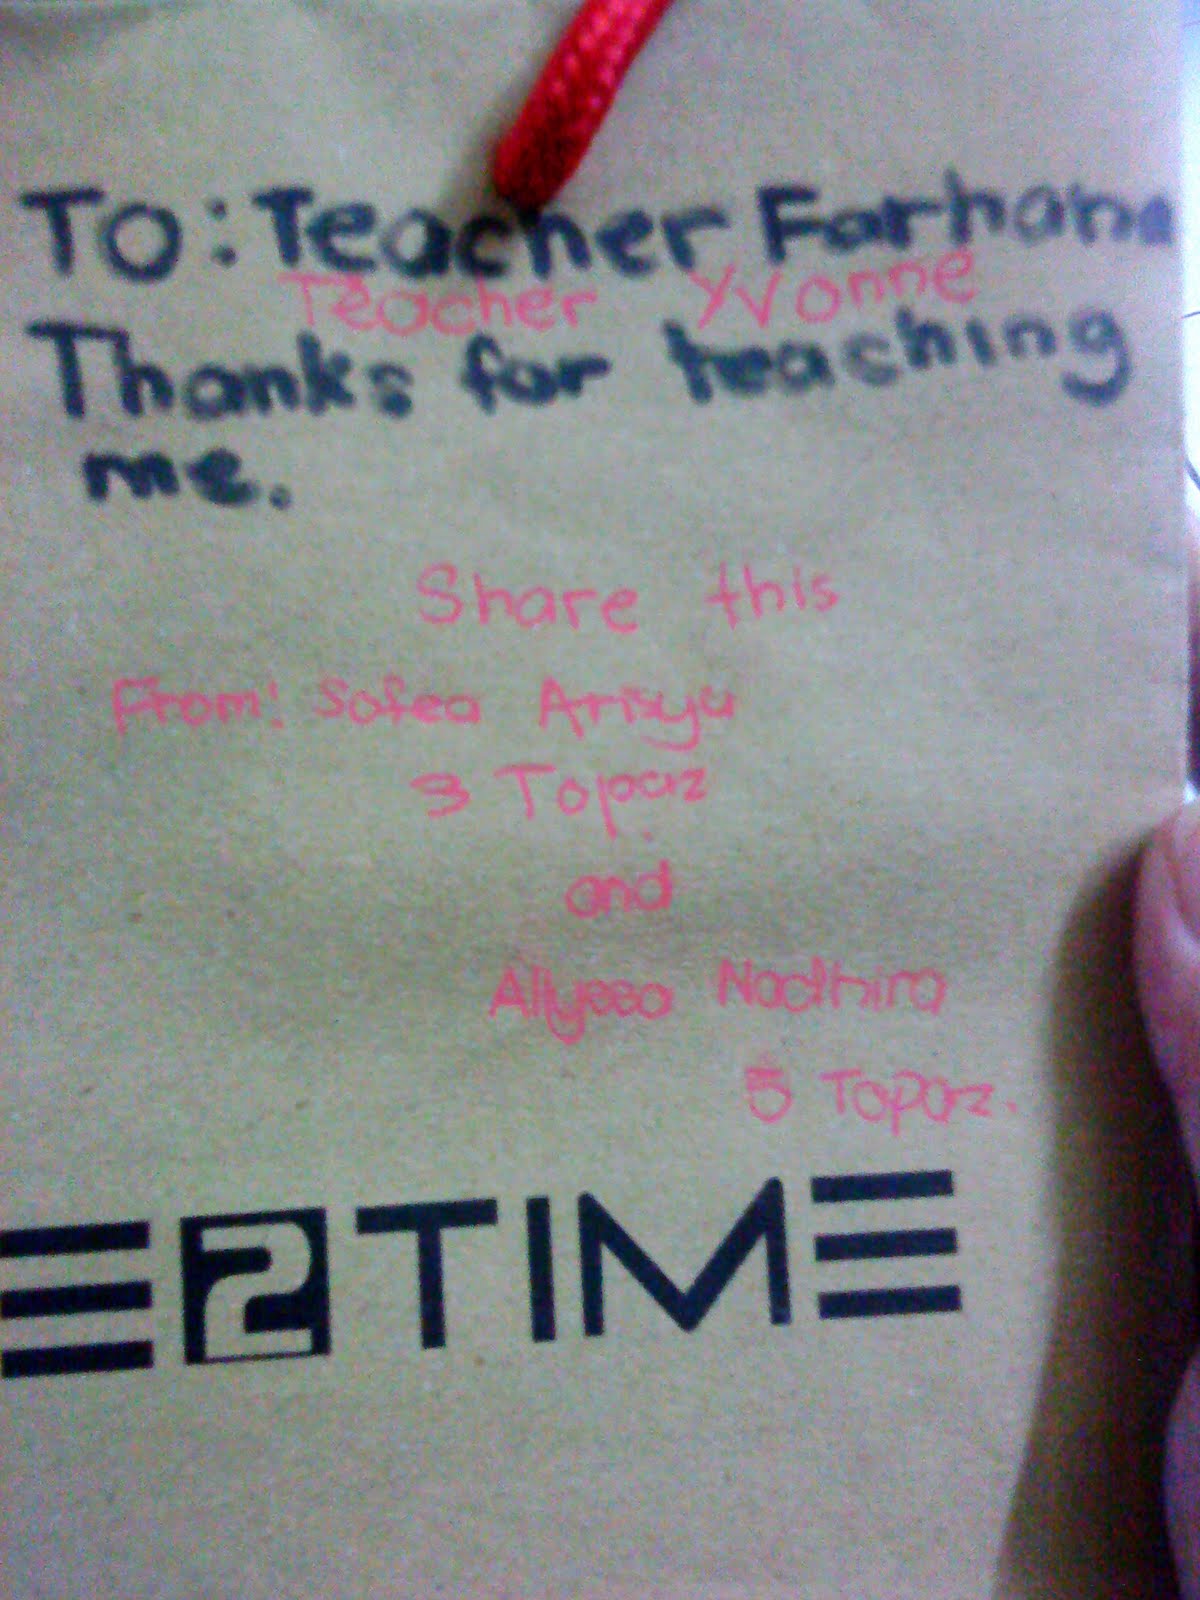 TO: Teacher Farhana
Teacher Yvonne
Thanks for teaching
me.
Share this
From: Sofea Arisya
3 Topaz
and
Allyssa Nadhira
5 Topaz.
E2TIME